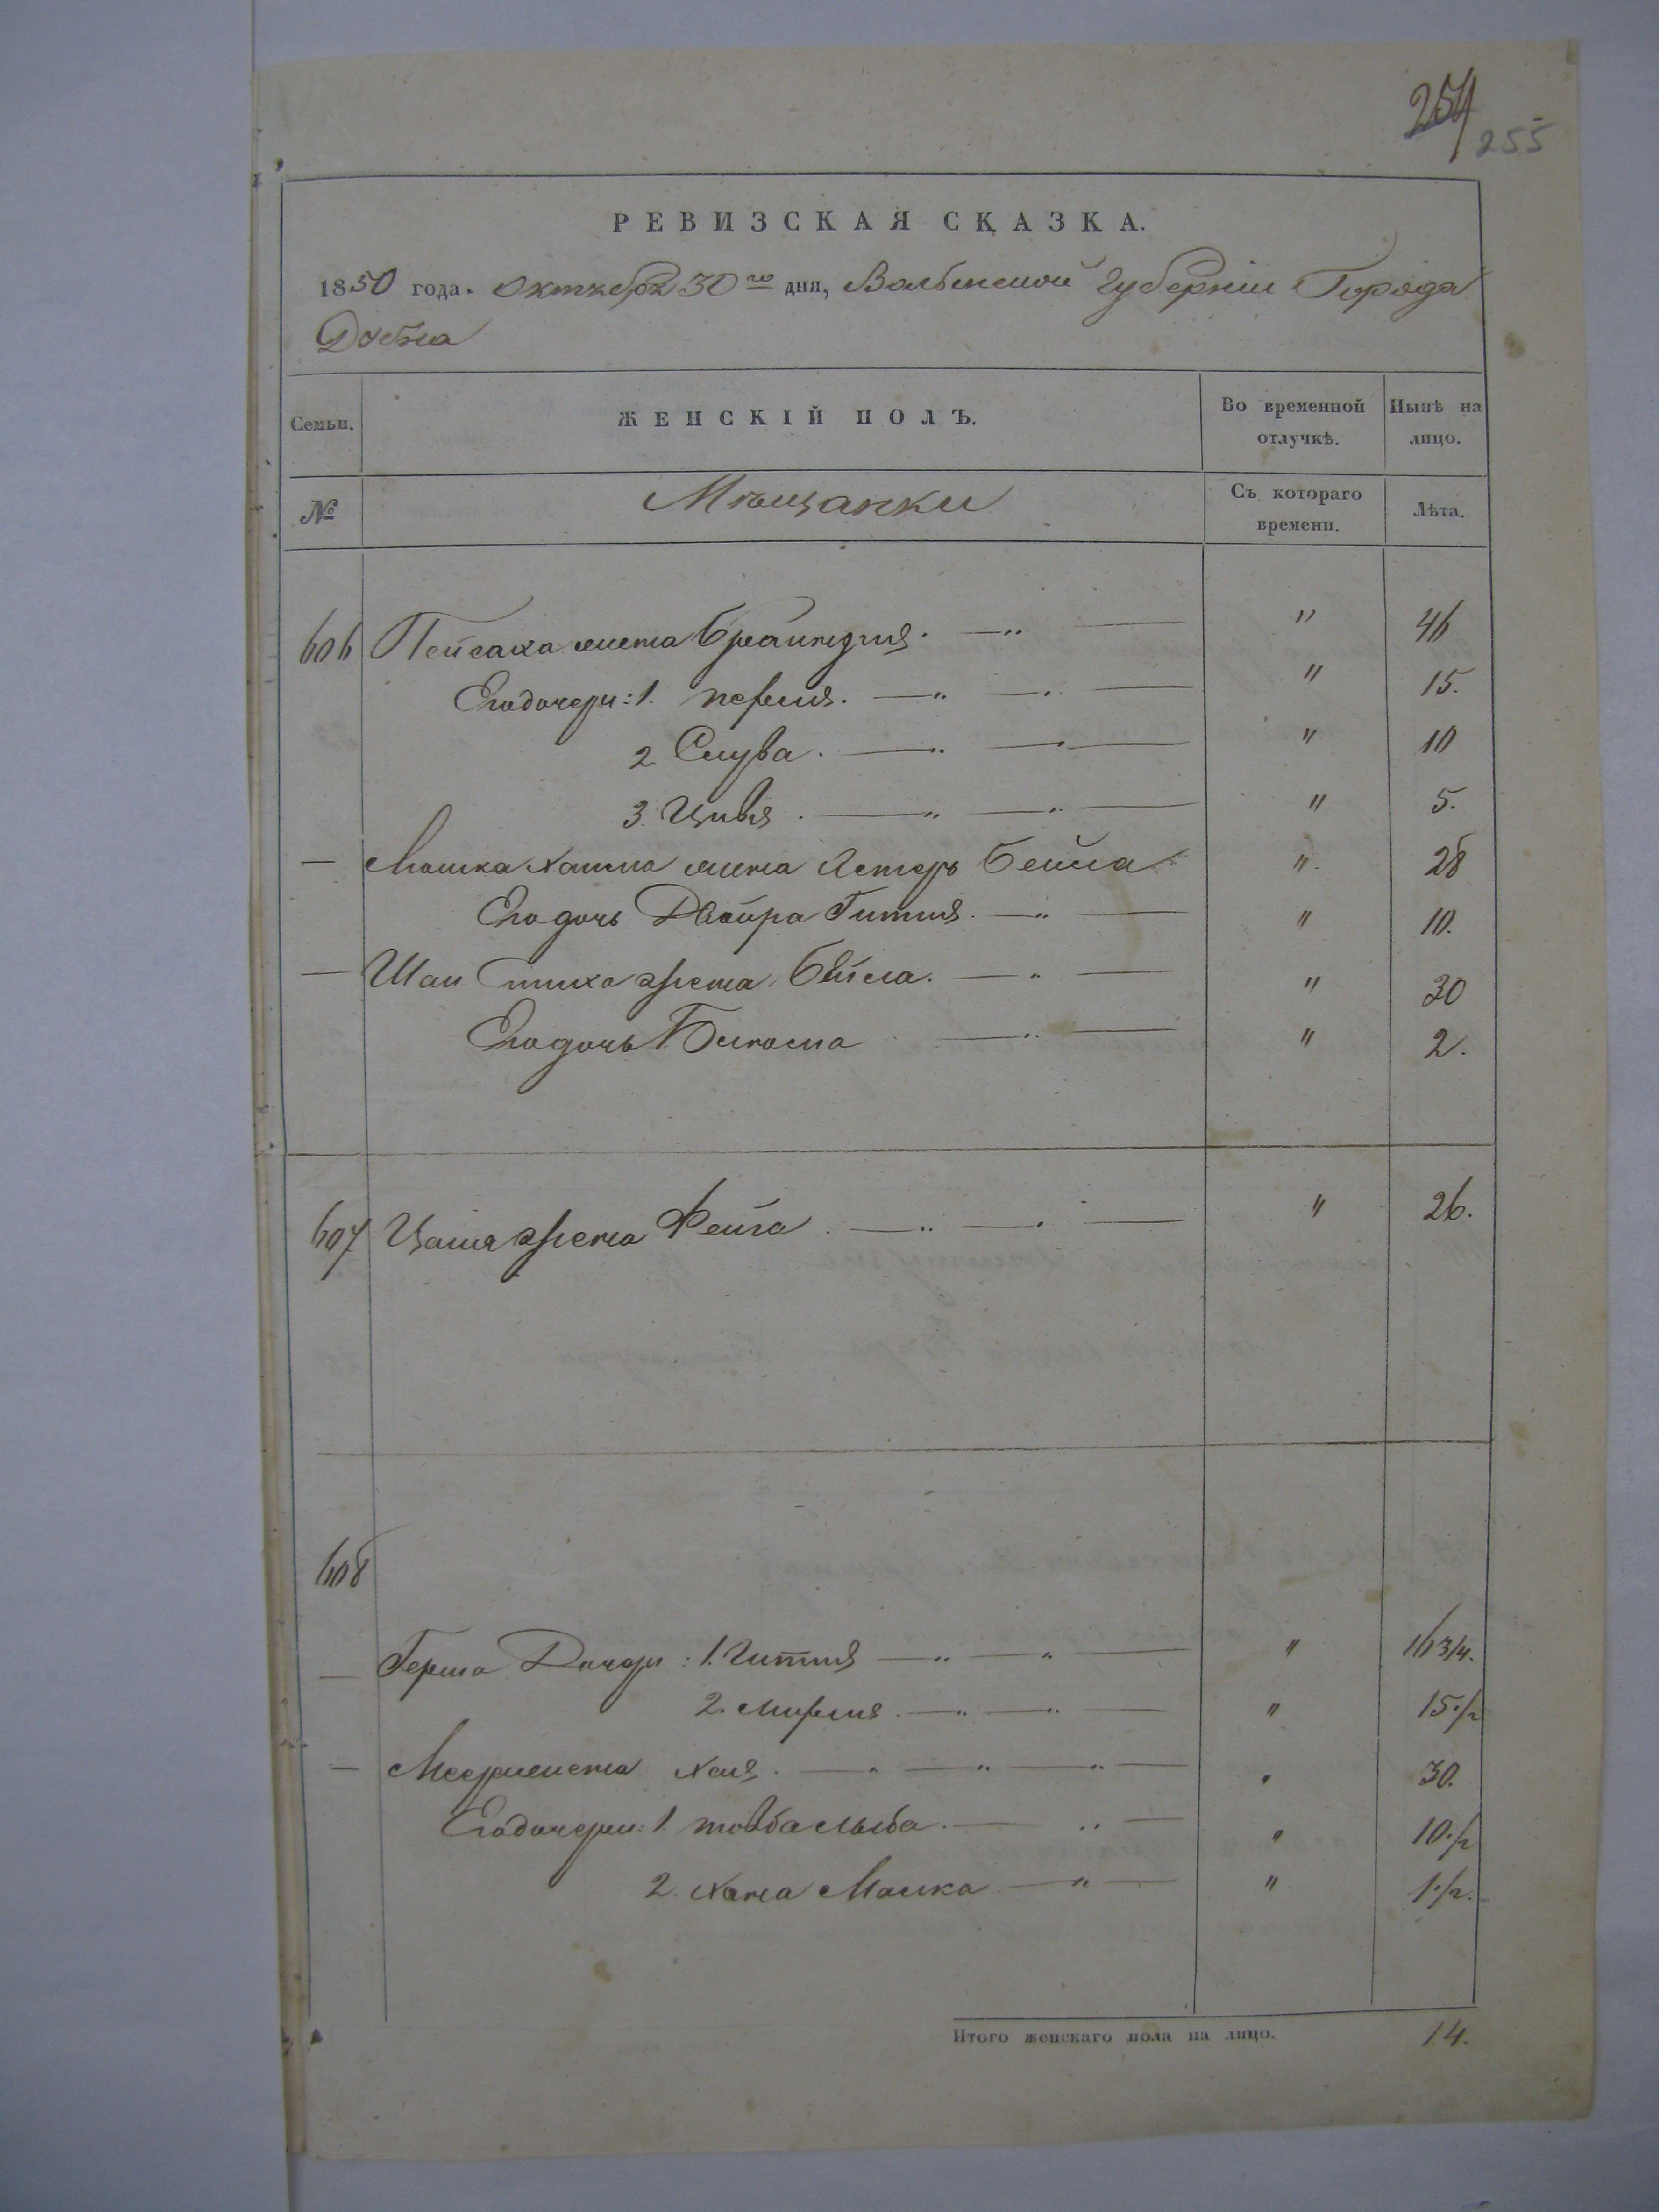 254
255
РЕВИЗСКАЯ СКАЗКА.
1850 года. Октября 30го дня, Волынской Губерніи Города
Дубна
Семьи. ЖЕНСКІЙ ПОЛЪ. Во временной отлучкѣ. Нынѣ на лицо.
№ Мѣщанки Съ котораго времени. Лѣта.
606 Пейсаха жена Браиндля. " 46
Его дочери: 1. перля. " 15.
2 Слува. " 10
3. Цивя. " 5.
— Мошка жена Естеръ Бейла ". 28
Его дочь Двойра Гитля. " 10.
— Шаи жена Бейла. " 30
Его дочь " 2.
607 жена Фейга. " 26.
608
— Герша Дочери: 1. Гитля " 16 3/4.
2. мирля. " 15 1/2
— Меера жена хая. " 30.
Его дочери: 1. " 10 1/2
2. хана Малка " 1 1/2.
Итого женскаго пола на лицо. 14.